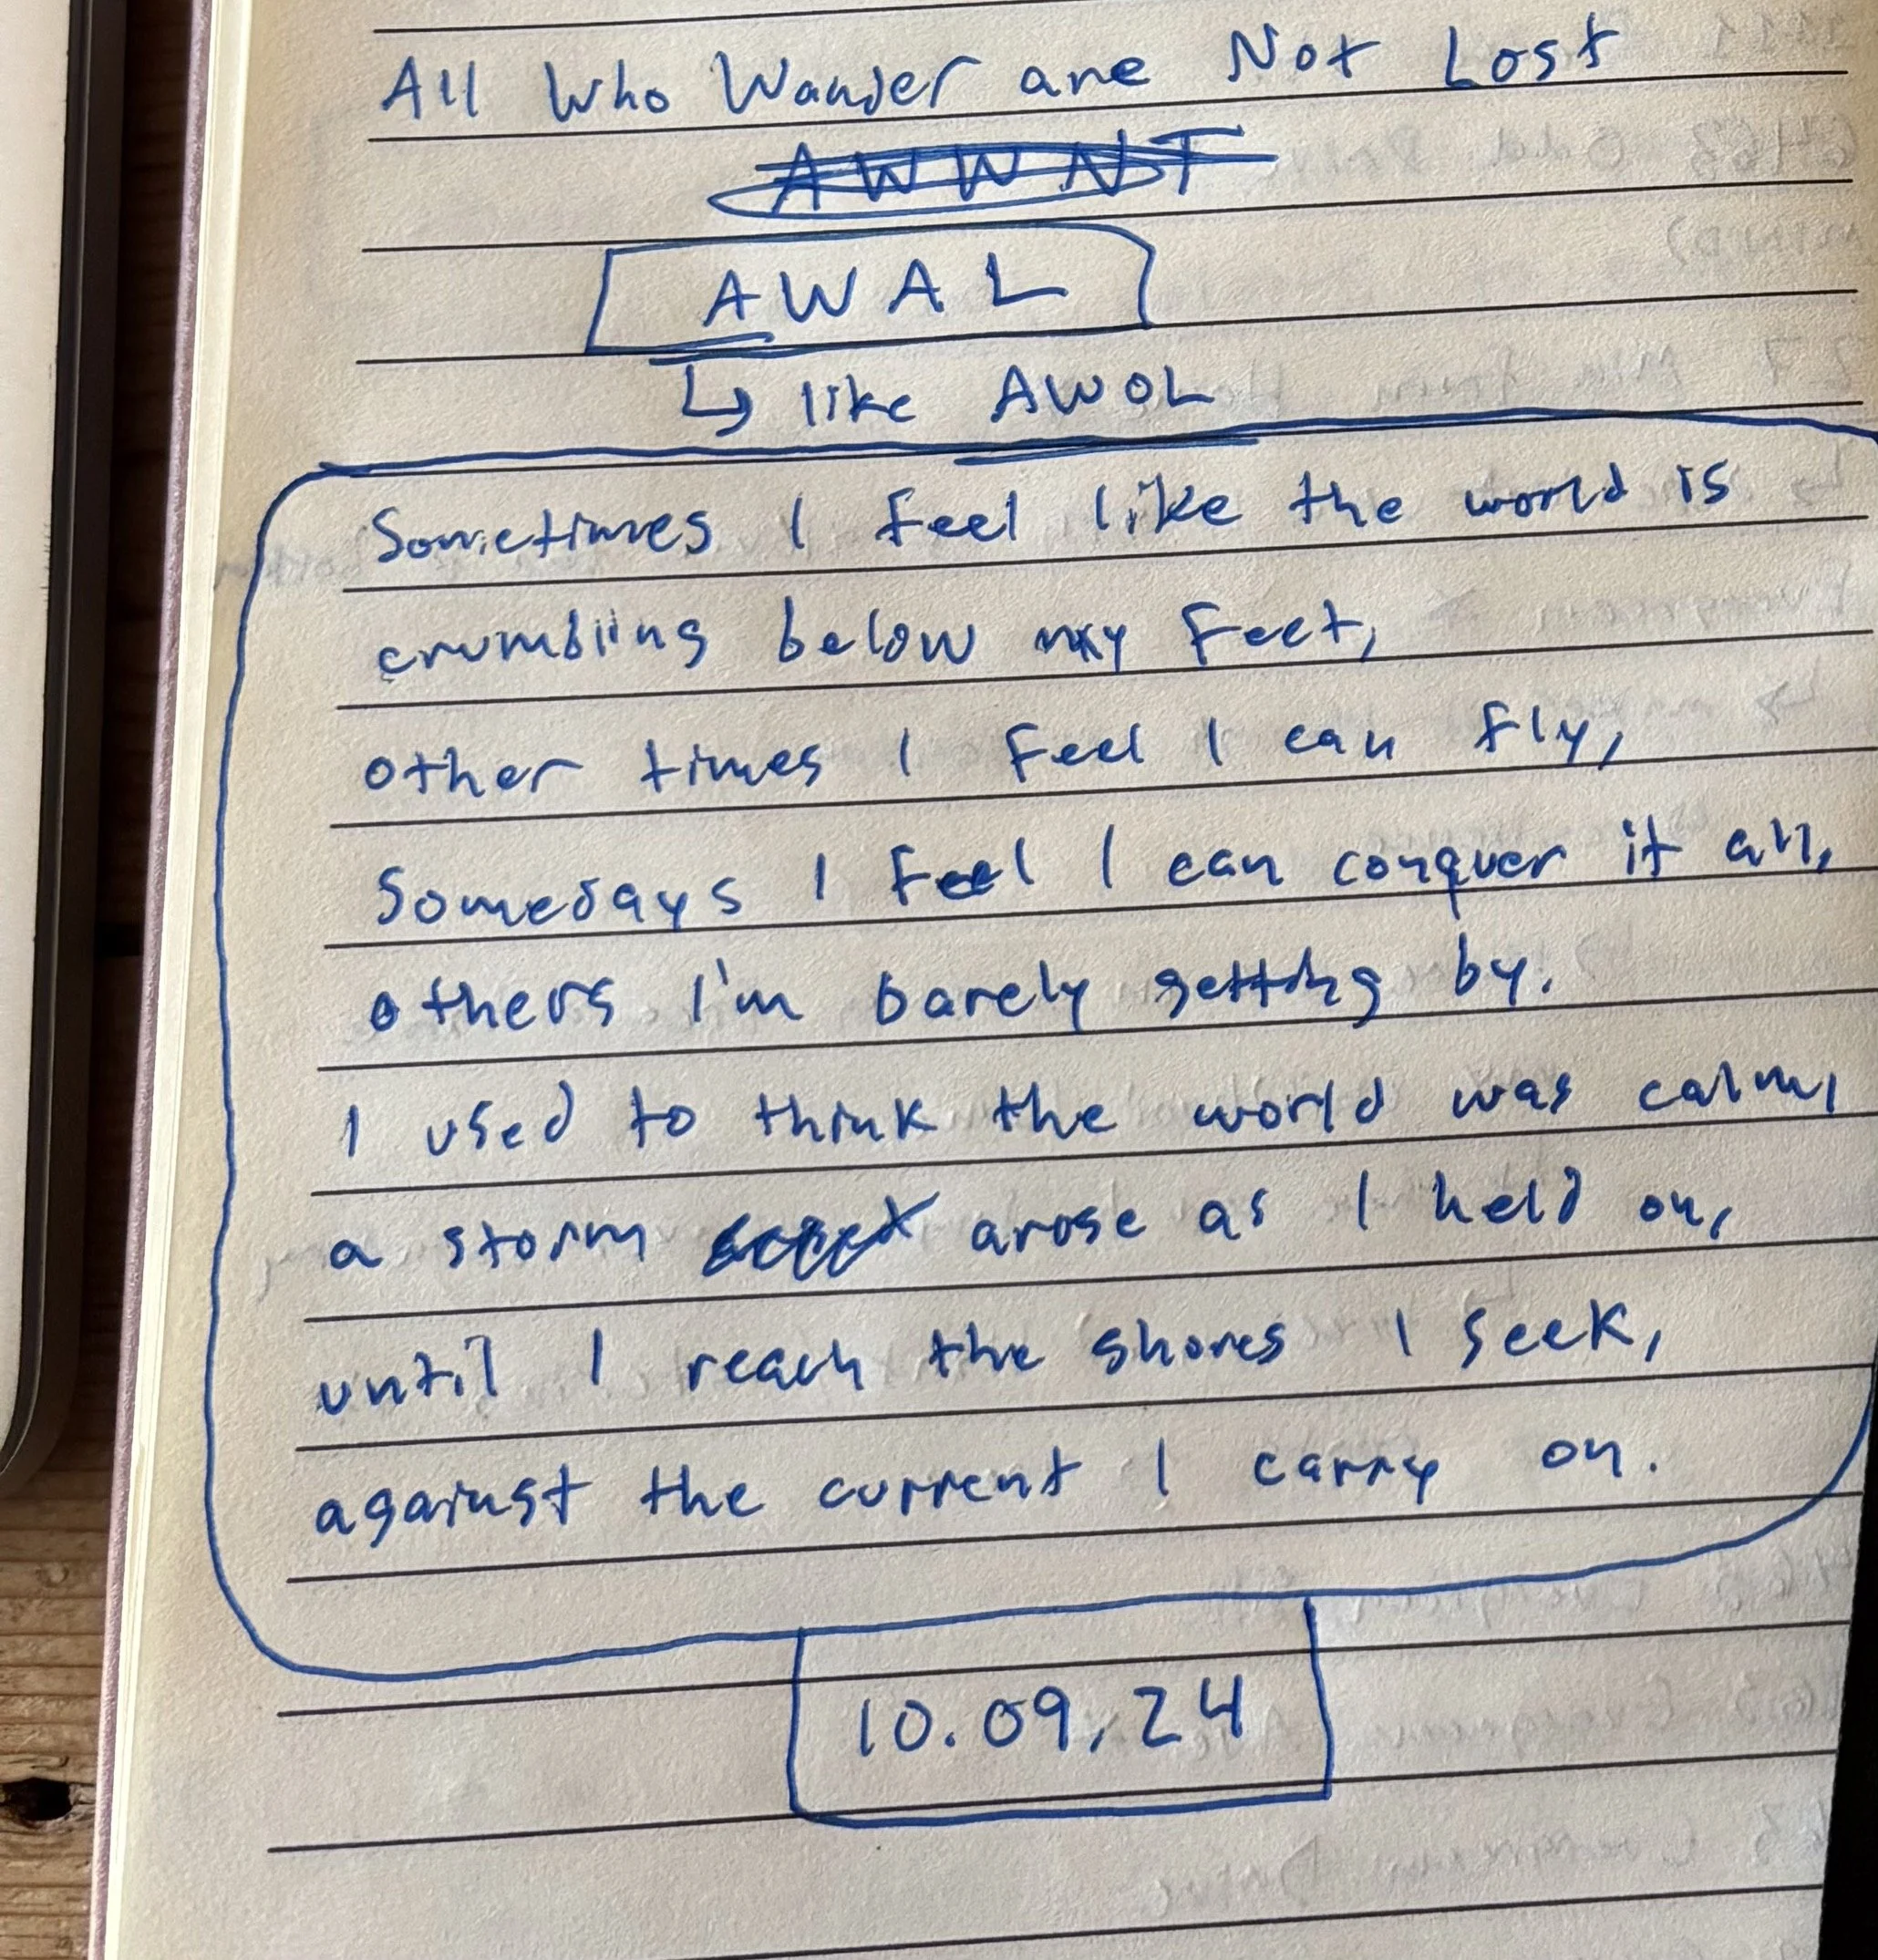 All Who Wander are Not Lost
AWWNT
AWAL
↳ like AWOL
Sometimes I feel like the world is
crumbling below my feet,
other times I feel I can fly,
Somedays I feel I can conquer it all,
others I'm barely getting by.
I used to think the world was calm,
a storm arose as I held on,
until I reach the shores I seek,
against the current I carry on.
10.09.24